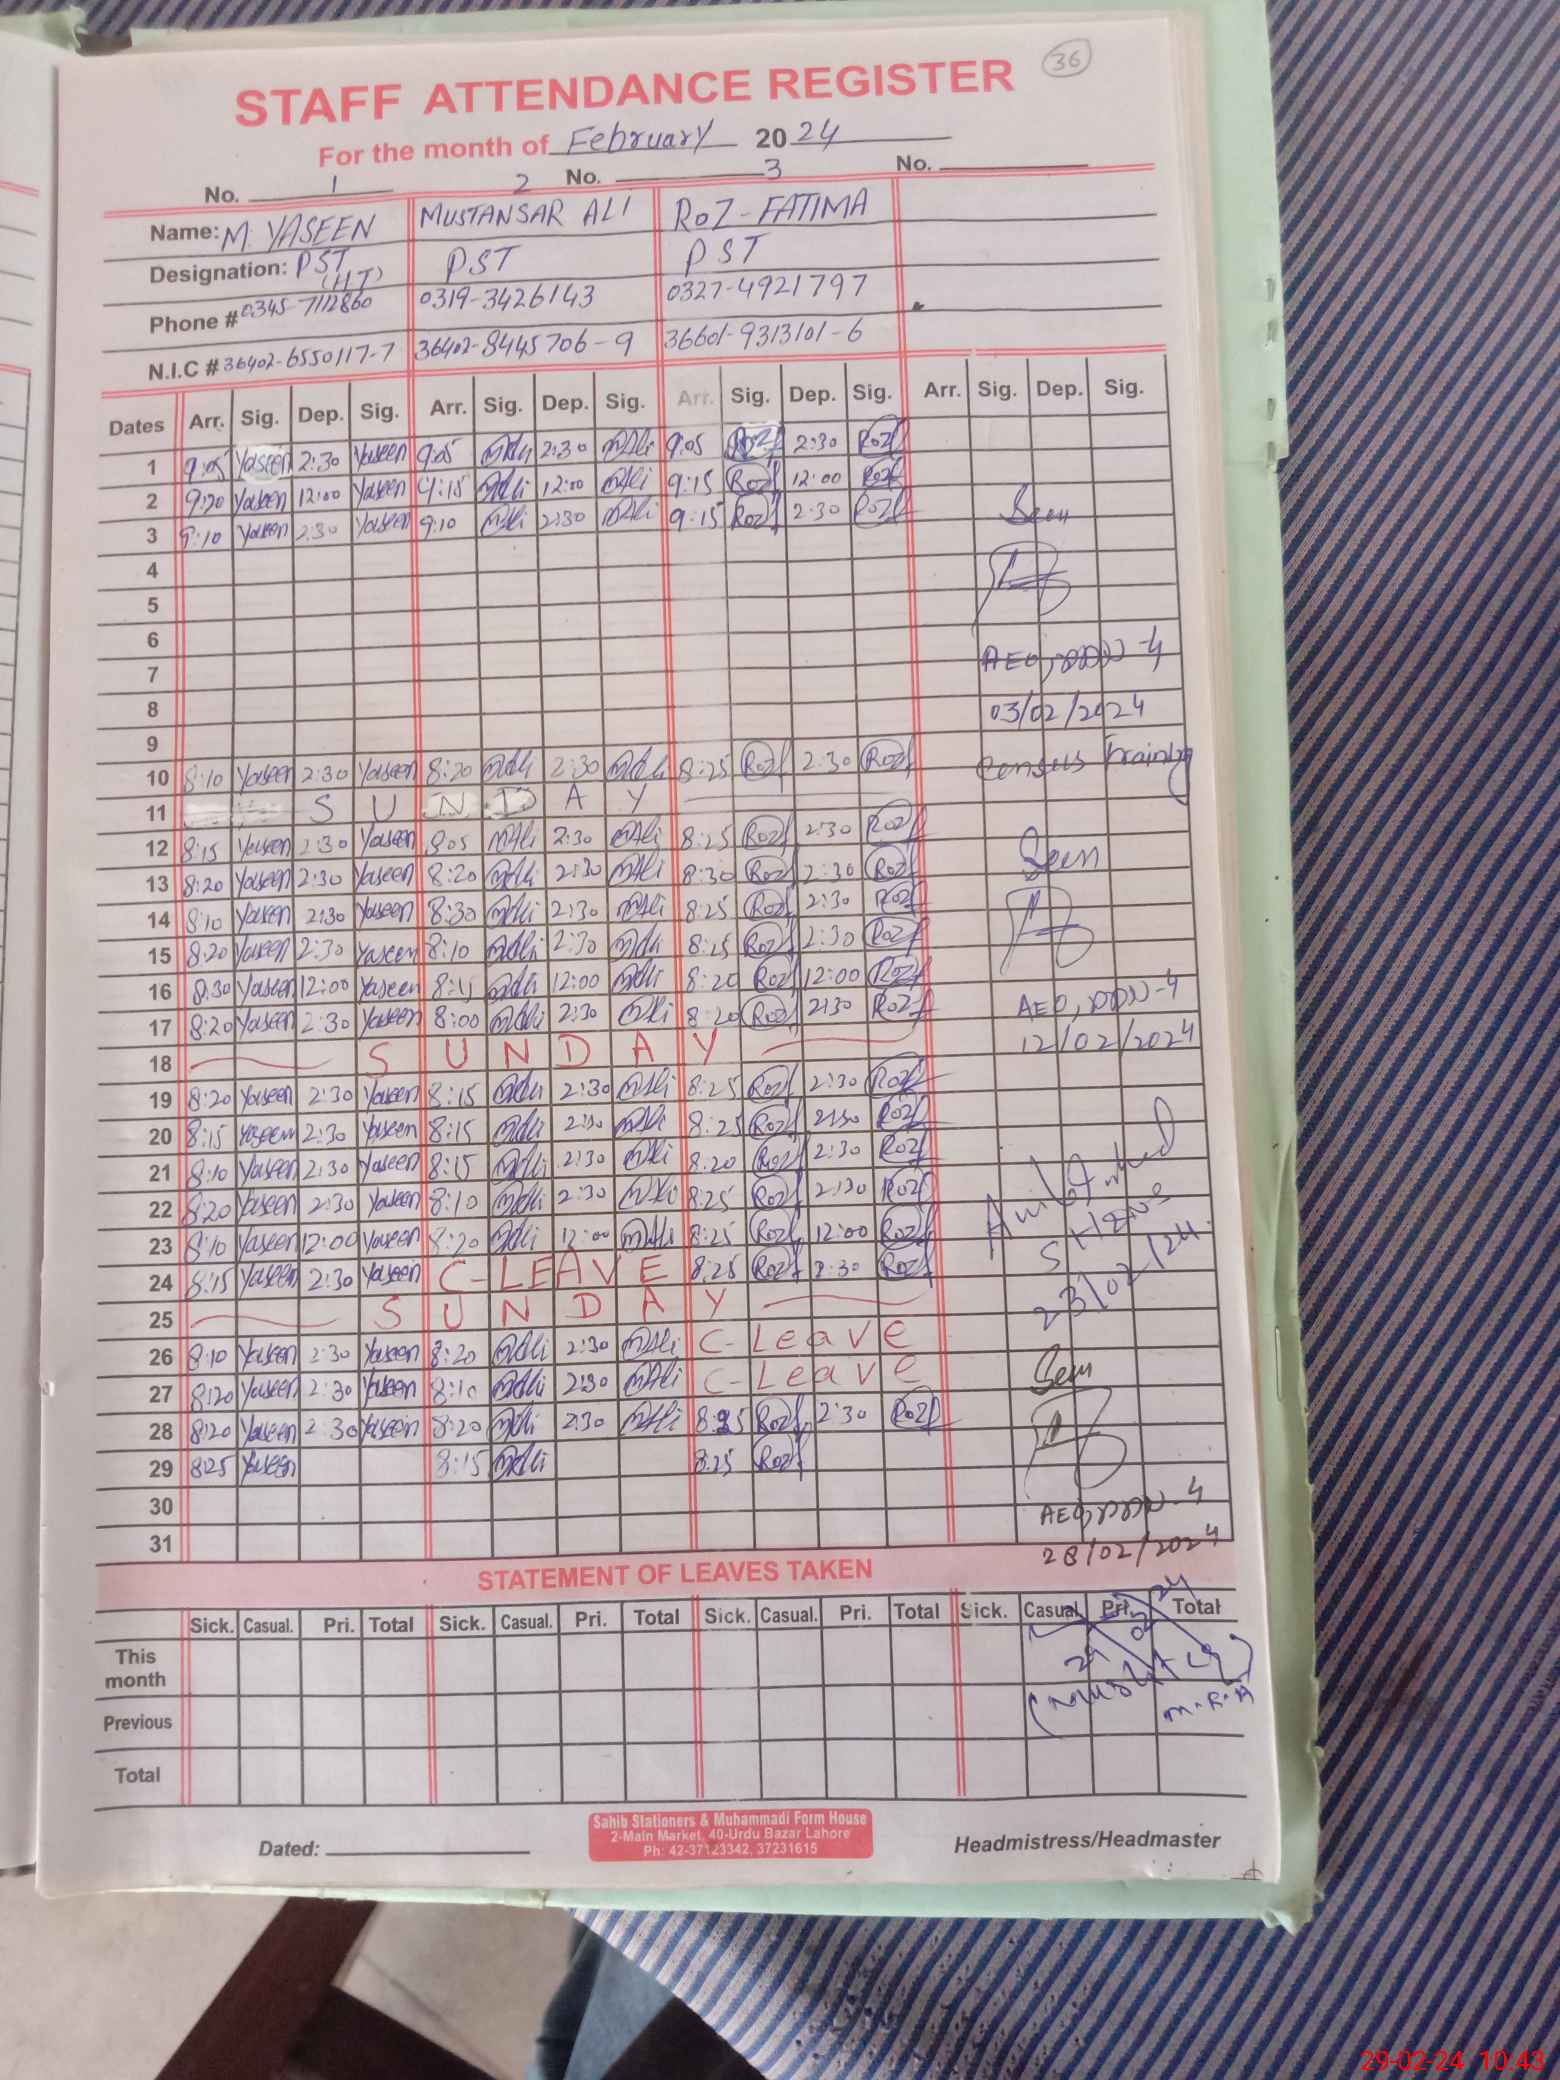 36
STAFF ATTENDANCE REGISTER
For the month of February 2024
No. 1 2 No. 3 No.
Name: M YASEEN MUSTANSAR ALI ROZ-FATIMA
Designation: PST (HT) PST PST
Phone # 0345-7112860 0319-3426143 0327-4921797
N.I.C # 36402-6550117-7 36402-8445706-9 36601-9313101-6
Dates Arr. Sig. Dep. Sig. Arr. Sig. Dep. Sig. Arr. Sig. Dep. Sig. Arr. Sig. Dep. Sig.
1 9:05 Yaseen 2:30 Yaseen 9:05 MAli 2:30 MAli 9:05 Rozf 2:30 Rozf
2 9:20 Yaseen 12:00 Yaseen 9:15 MAli 12:00 MAli 9:15 Rozf 12:00 Rozf
3 9:10 Yaseen 2:30 Yaseen 9:10 MAli 2:30 MAli 9:15 Rozf 2:30 Rozf Seen
4
5
6
7 AEO, -4
8 03/02/2024
9
10 8:10 Yaseen 2:30 Yaseen 8:20 MAli 2:30 MAli 8:25 Rozf 2:30 Rozf Census Training
11 S U N D A Y
12 8:15 Yaseen 2:30 Yaseen 8:05 MAli 2:30 MAli 8:25 Rozf 2:30 Rozf Seen
13 8:20 Yaseen 2:30 Yaseen 8:20 MAli 2:30 MAli 8:30 Rozf 2:30 Rozf
14 8:10 Yaseen 2:30 Yaseen 8:30 MAli 2:30 MAli 8:25 Rozf 2:30 Rozf
15 8:20 Yaseen 2:30 Yaseen 8:10 MAli 2:30 MAli 8:25 Rozf 2:30 Rozf
16 8:30 Yaseen 12:00 Yaseen 8:15 MAli 12:00 MAli 8:20 Rozf 12:00 Rozf
17 8:20 Yaseen 2:30 Yaseen 8:00 MAli 2:30 MAli 8:20 Rozf 2:30 Rozf AEO, -4
18 S U N D A Y 12/02/2024
19 8:20 Yaseen 2:30 Yaseen 8:15 MAli 2:30 MAli 8:25 Rozf 2:30 Rozf
20 8:15 Yaseen 2:30 Yaseen 8:15 MAli 2:30 MAli 8:25 Rozf 2:30 Rozf
21 8:10 Yaseen 2:30 Yaseen 8:15 MAli 2:30 MAli 8:20 Rozf 2:30 Rozf
22 8:20 Yaseen 2:30 Yaseen 8:10 MAli 2:30 MAli 8:25 Rozf 2:30 Rozf
23 8:10 Yaseen 12:00 Yaseen 8:20 MAli 12:00 MAli 8:25 Rozf 12:00 Rozf
24 8:15 Yaseen 2:30 Yaseen C-LEAVE 8:25 Rozf 2:30 Rozf
25 S U N D A Y 23/02/24.
26 8:10 Yaseen 2:30 Yaseen 8:20 MAli 2:30 MAli C-Leave
27 8:20 Yaseen 2:30 Yaseen 8:10 MAli 2:30 MAli C-Leave Seen
28 8:20 Yaseen 2:30 Yaseen 8:20 MAli 2:30 MAli 8:25 Rozf 2:30 Rozf
29 8:25 Yaseen 8:15 MAli 8:25 Rozf
30 AEO, -4
31 28/02/2024
STATEMENT OF LEAVES TAKEN
Sick. Casual. Pri. Total Sick. Casual. Pri. Total Sick. Casual. Pri. Total Sick. Casual Pri. Total
This month
29 02 24
Previous M.R.A
Total
Dated: Sahib Stationers & Muhammadi Form House Headmistress/Headmaster
2-Main Market, 40-Urdu Bazar Lahore
Ph: 42-37123342, 37231615
29-02-24 10:43